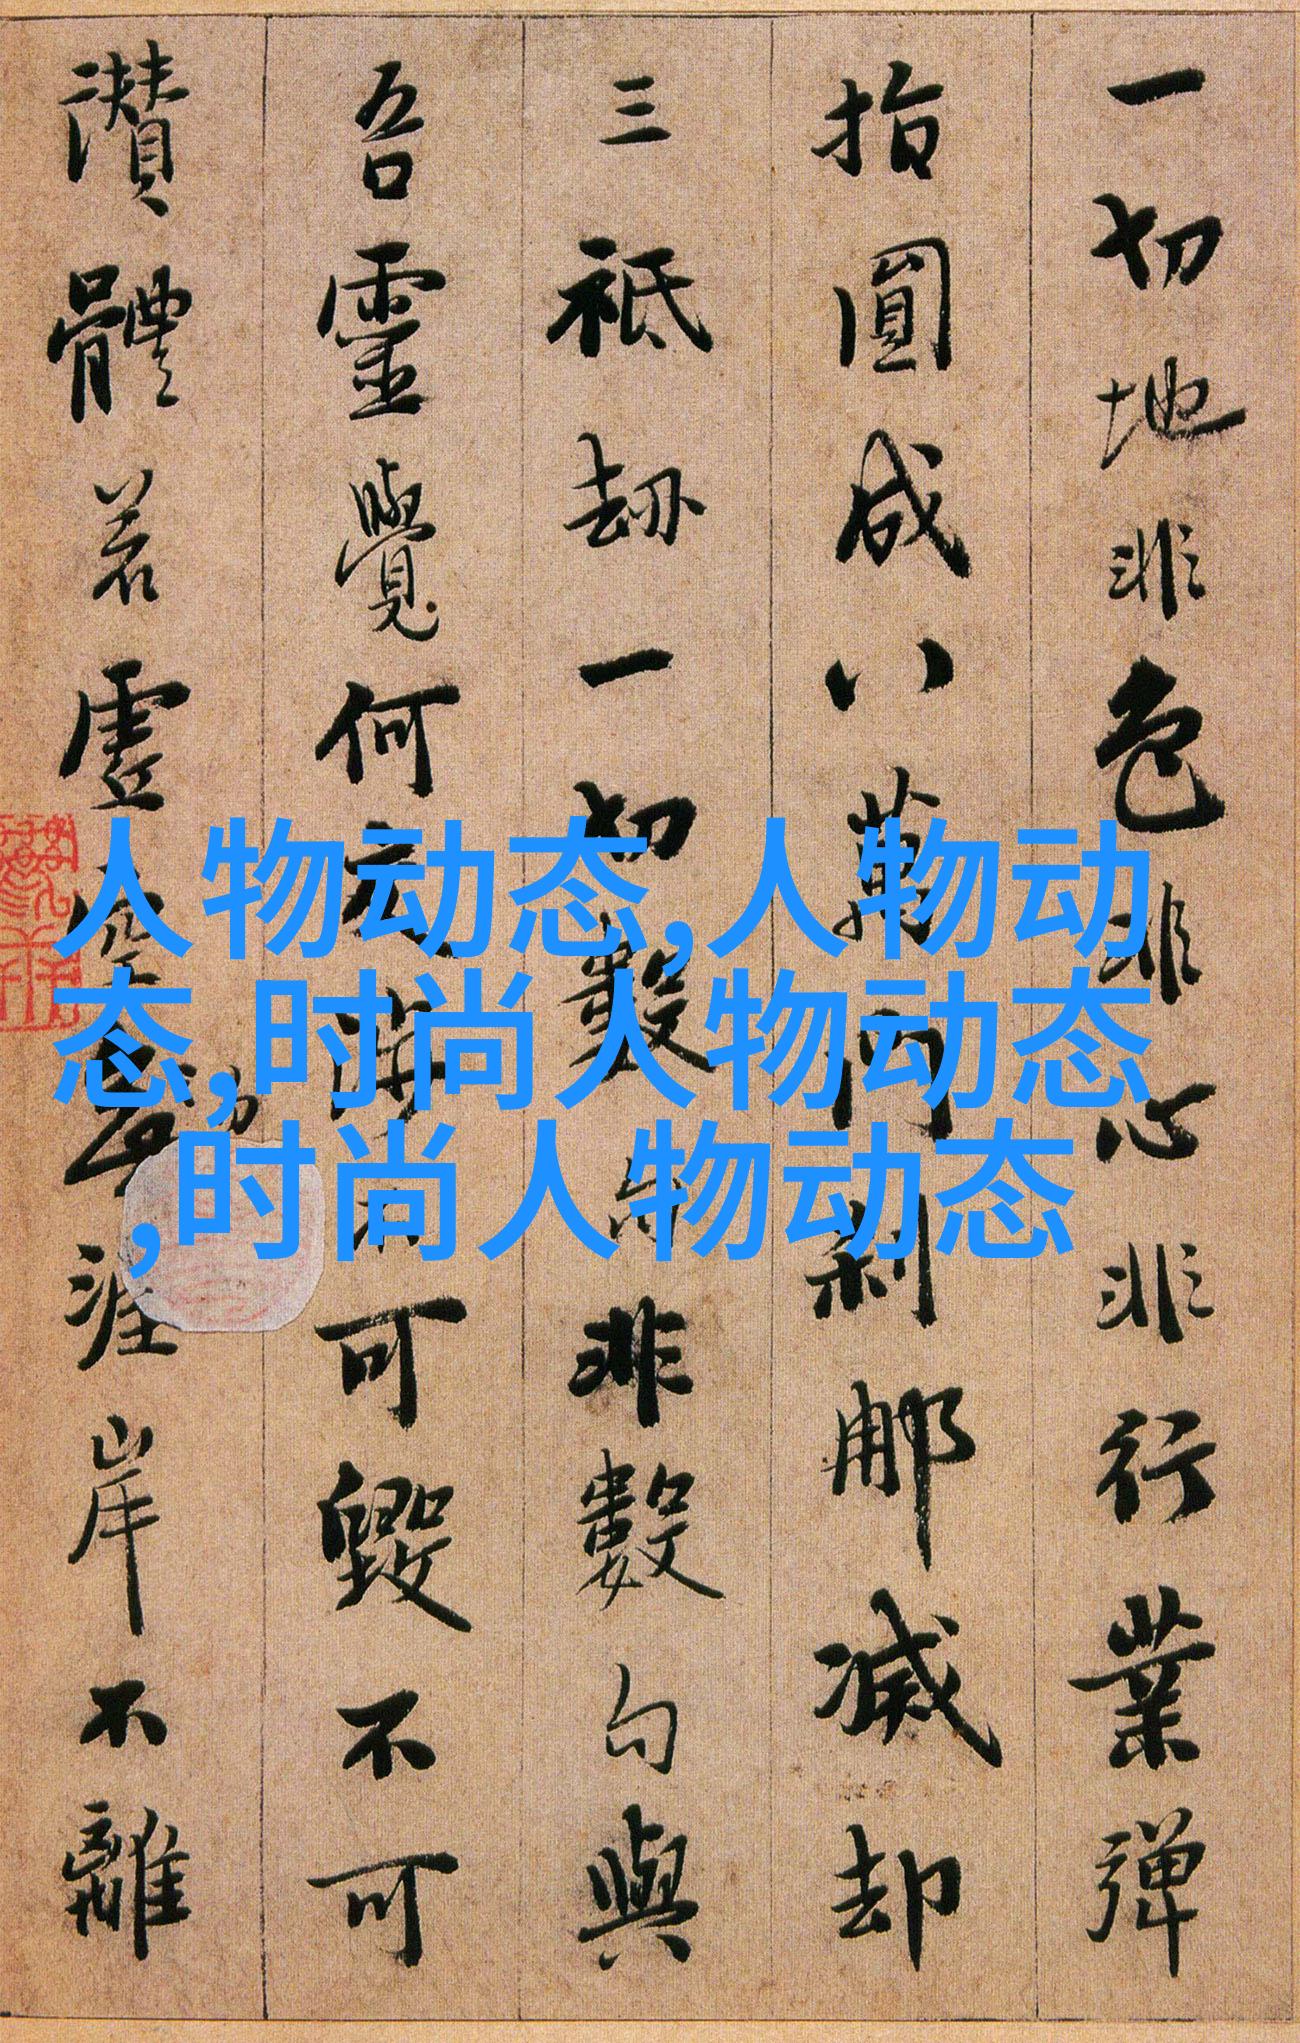 一切地非色非心非行業彈
指圓成八萬門剎那滅却
三祇劫一切數句非數句與
吾靈覺何交涉不可毀不可
讚體若虛空勿涯岸不離
人物动态,人物动
态,时尚人物动态
,时尚人物动态